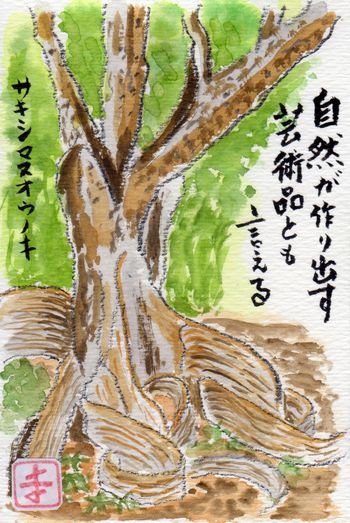 自然が作り出す
芸術品とも
言える
サキシマスオウノキ